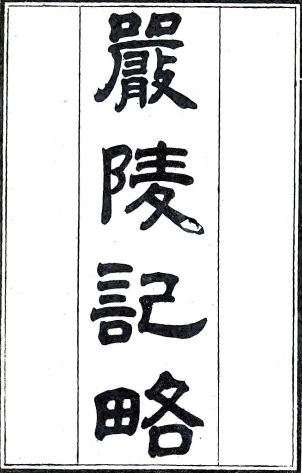 嚴陵記略